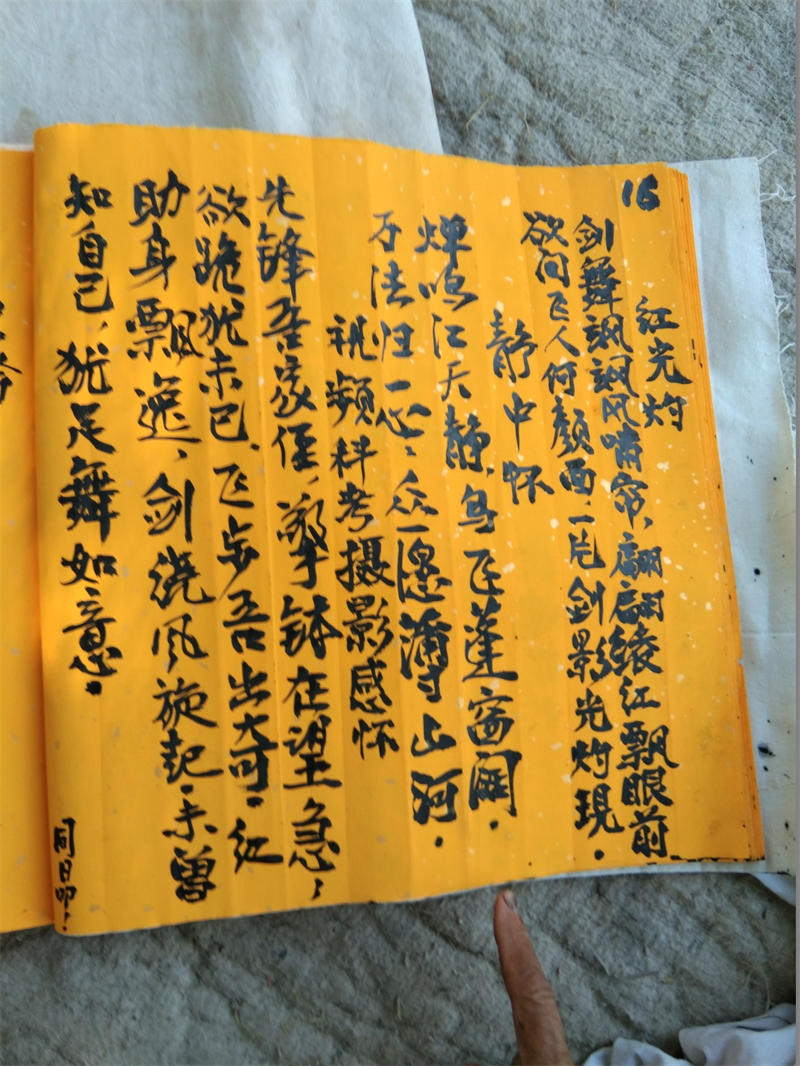 16
红光灼
剑舞飒飒风啸帘,翩翩绫红飘眼前
欲问飞人何颜面,一片剑影光灼现.
静中怀
蝉鸣江天静,鸟飞蓬窗阔.
万法归一心,众一德薄山河.
视频科考摄影感怀
先锋吾家侄,擎钵在望急,
欲跪犹未已、飞步吾出奇.红
助身飘逸,剑绕风旋起.未曾
知自己,犹是舞如意.
同日叩!